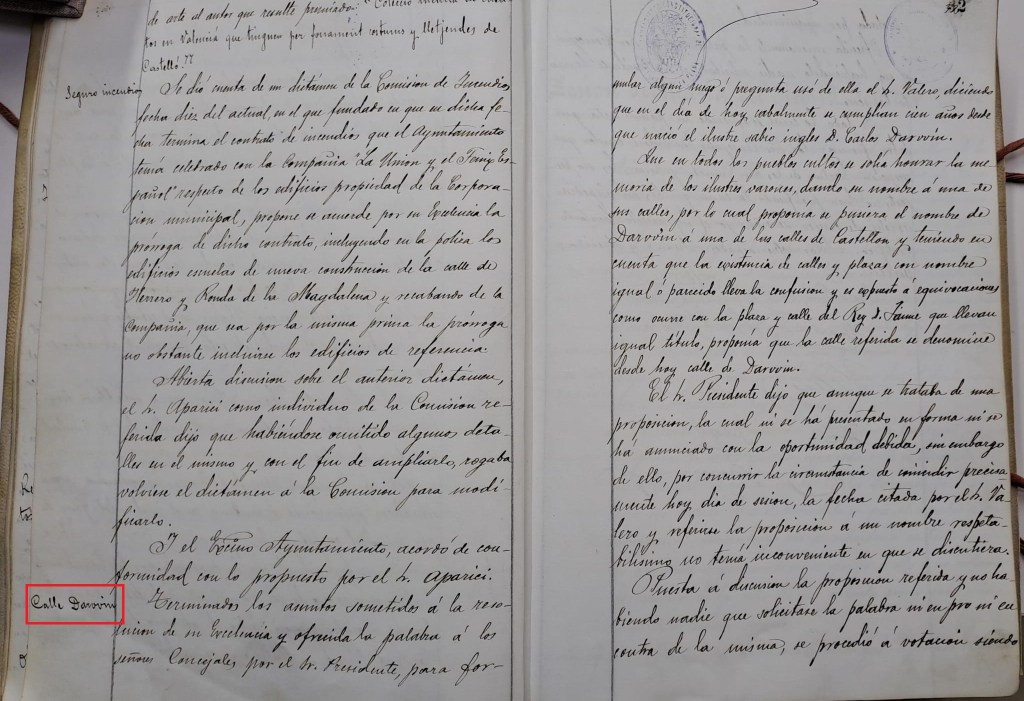 de arte al autor que resulte premiado: "Colecció
tos en Valenciá que tinguen per fonament costums y lletjendes de
Castelló."
Seguro incendios
Se dió cuenta de un dictámen de la Comision de Incendios
fecha diez del actual, en el que fundado en que en dicha fe-
cha termina el contrato de incendios que el Ayuntamiento
tenia celebrado con la Compañia "La Union y el Fenix Es-
pañol" respeto de los edificios propiedad de la Corpora-
cion municipal, propone se acuerde por su Excelencia la
prórroga de dicho contrato, incluyendo en la poliza los
edificios escuelas de nueva construcción de la calle de
Herrero y Ronda de la Magdalena y recabando de la
Compañia, que sea por la misma prima la prórroga
no obstante incluirse los edificios de referencia.
Abierta discusion sobre el anterior dictámen,
el Sr. Aparici como individuo de la Comision re-
ferida dijo que habiéndose omitido algunos deta-
lles en el mismo y con el fin de ampliarlo, rogaba
volviese el dictámen á la Comision para modi-
ficarlo.
Y el Excmo Ayuntamiento, acordó de con-
formidad con lo propuesto por el Sr. Aparici.
Calle Darvvin
Terminados los asuntos sometidos á la reso-
lucion de su Excelencia y ofrecida la palabra á los
señores Concejales por el Sr. Presidente, para for-
32
mular algun ruego ó pregunta usó de ella el Sr. Valero, diciendo
que en el dia de hoy, cabalmente se cumplian cien años desde
que nació el ilustre sabio ingles D. Carlos Darvvin.
Que en todos los pueblos cultos se solia honrar la me-
moria de los ilustres varones, dando su nombre á una de
sus calles, por lo cual proponia se pusiera el nombre de
Darvvin á una de las calles de Castellon y teniendo en
cuenta que la existencia de calles y plazas con nombre
igual ó parecido lleva la confusion y es expuesto á equivocaciones
como ocurre con la plaza y calle del Rey D. Jaime que llevan
igual título, proponia que la calle referida se denomine
desde hoy calle de Darvvin.
El Sr. Presidente dijo que aunque se trataba de una
proposicion, la cual ni se há presentado en forma ni se
há anunciado con la oportunidad debida, sin embargo
de ello, por concurrir la circunstancia de coincidir precisa-
mente hoy dia de sesion, la fecha citada por el Sr. Va-
lero y referirse la proposicion á un nombre respeta-
bilisimo no tenia inconveniente en que se discutiera.
Puesta á discusion la proposicion referida y no ha-
biendo nadie que solicitase la palabra ni en pro ni en
contra de la misma, se procedió á votación siendo